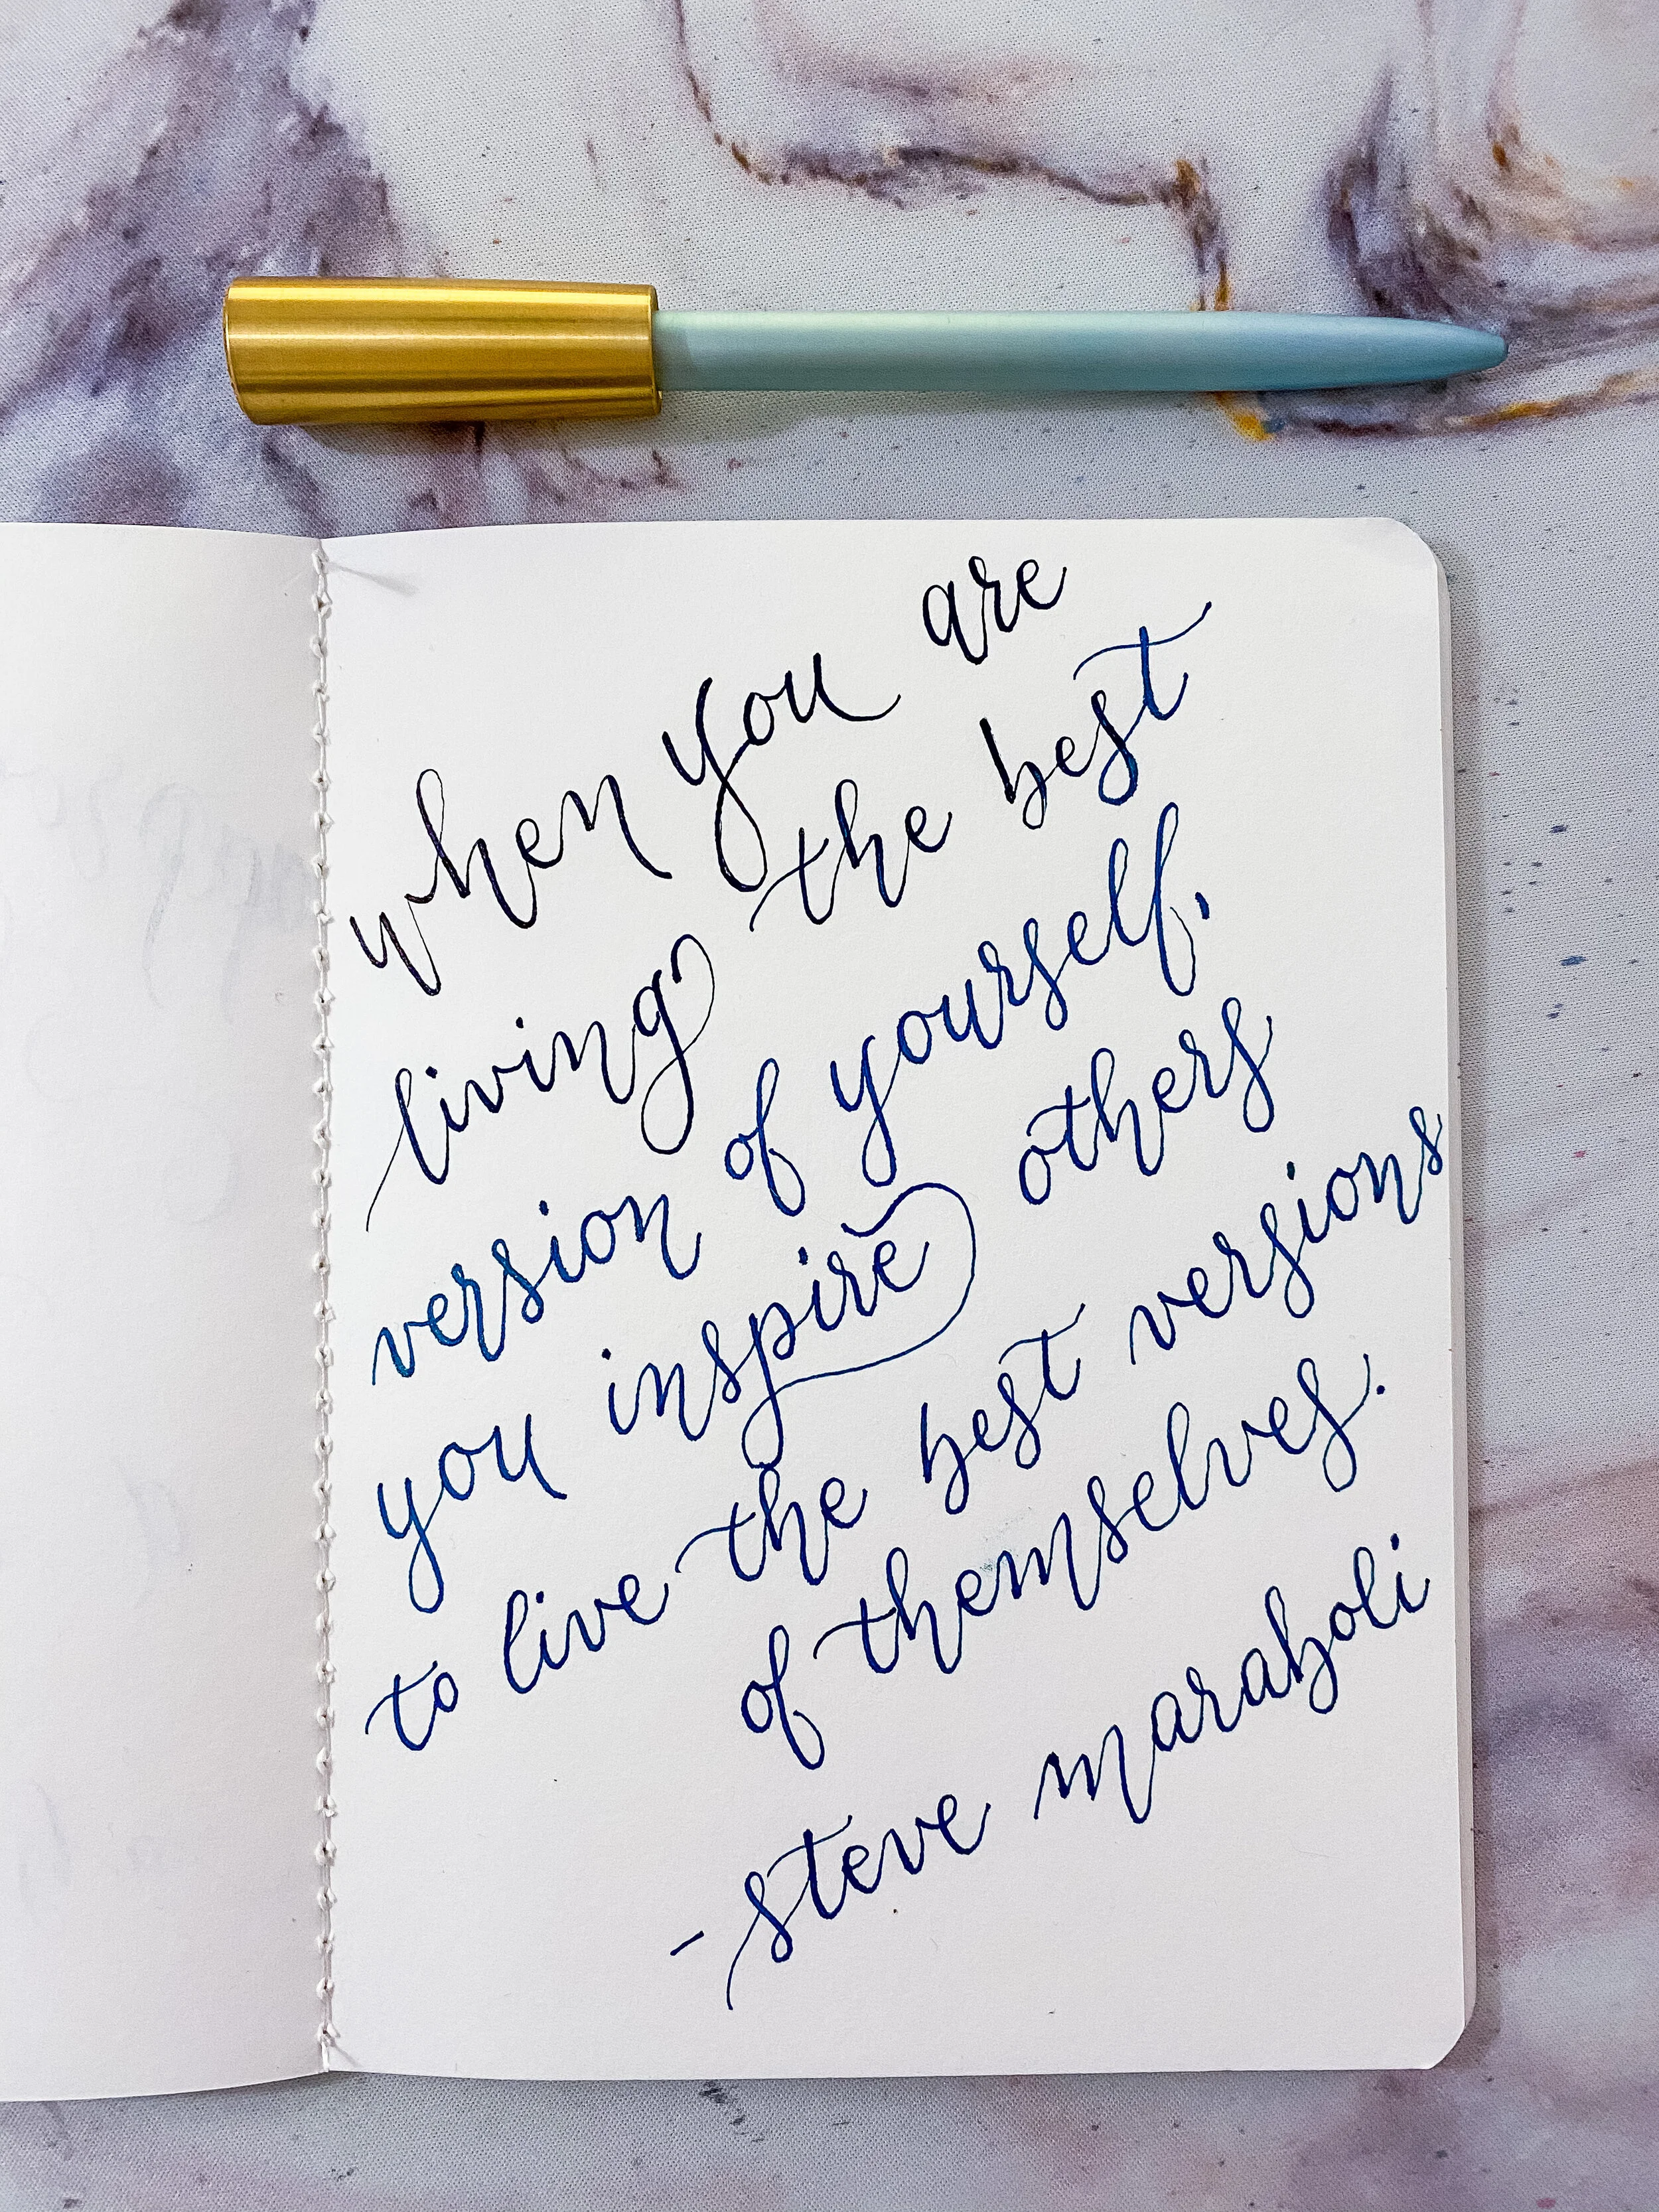 when you are
living the best
version of yourself,
you inspire others
to live the best versions
of themselves.
- steve maraboli